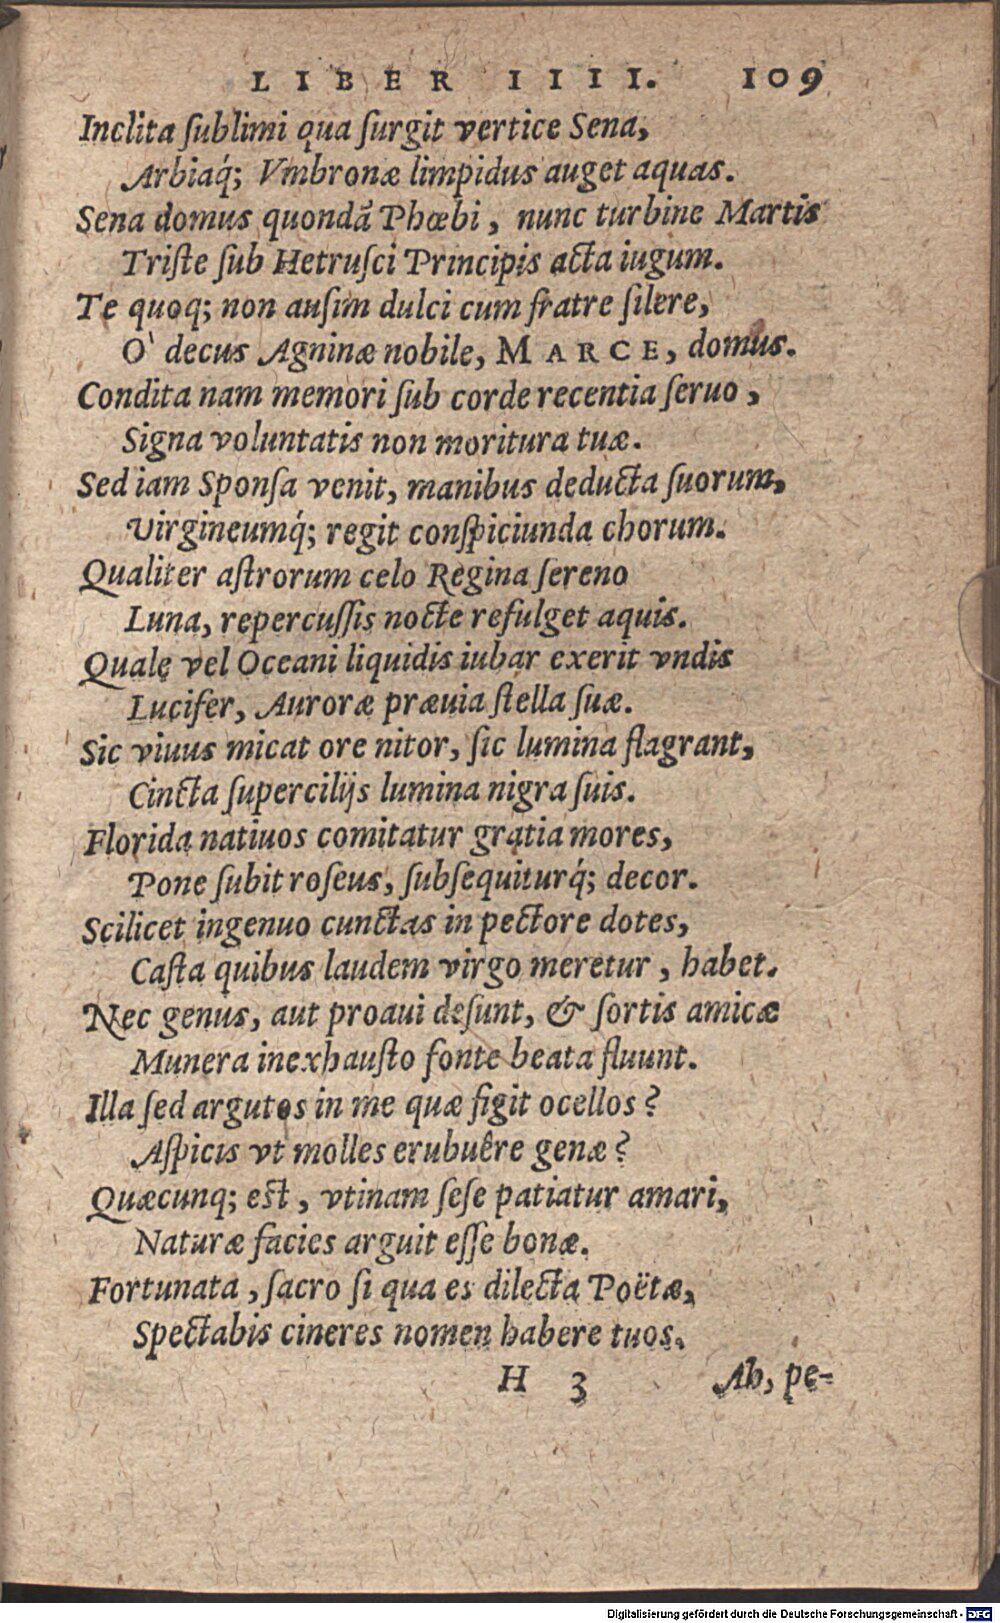 LIBER IIII. 109
Inclita ſublimi qua ſurgit vertice Sena,
Arbiaq́; Vmbronæ limpidus auget aquas.
Sena domus quondã Phœbi, nunc turbine Martis
Triſte ſub Hetruſci Principis acta iugum.
Te quoq; non auſim dulci cum fratre ſilere,
O' decus Agninæ nobile, MARCE, domus.
Condita nam memori ſub corde recentia ſeruo,
Signa voluntatis non moritura tuæ.
Sed iam Sponſa venit, manibus deducta ſuorum,
Virgineumq́; regit conſpiciunda chorum.
Qualiter aſtrorum celo Regina ſereno
Luna, repercuſſis nocte refulget aquis.
Qualẹ vel Oceani liquidis iubar exerit vndis
Lucifer, Auroræ præuia ſtella ſuæ.
Sic viuus micat ore nitor, ſic lumina flagrant,
Cincta ſupercilijs lumina nigra ſuis.
Florida natiuos comitatur gratia mores,
Pone ſubit roſeus, ſubſequiturq́; decor.
Scilicet ingenuo cunctas in pectore dotes,
Caſta quibus laudem virgo meretur, habet.
Nec genus, aut proaui deſunt, & ſortis amicæ
Munera inexhauſto fonte beata fluunt.
Illa ſed argutos in me quæ figit ocellos?
Aſpicis vt molles erubuêre genæ?
Quæcunq; eſt, vtinam ſeſe patiatur amari,
Naturæ facies arguit eſſe bonæ.
Fortunata, ſacro ſi qua es dilecta Poëtæ,
Spectabis cineres nomen habere tuos.
H 3 Ah, pe-
Digitalisierung gefördert durch die Deutsche Forschungsgemeinschaft - DFG